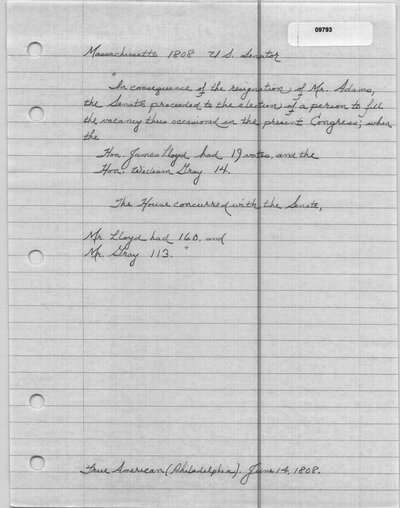 09793
Massachusetts 1808 U.S. Senator
"In consequence of the resignation of Mr. Adams,
the Senate proceeded to the election of a person to fill
the vacancy thus occasioned in the present Congress; when
the
Hon. James Lloyd had 19 votes, and the
Hon. William Gray 14.
The House concurred with the Senate,
Mr. Lloyd had 160, and
Mr. Gray 113."
True American (Philadelphia). June 14, 1808.